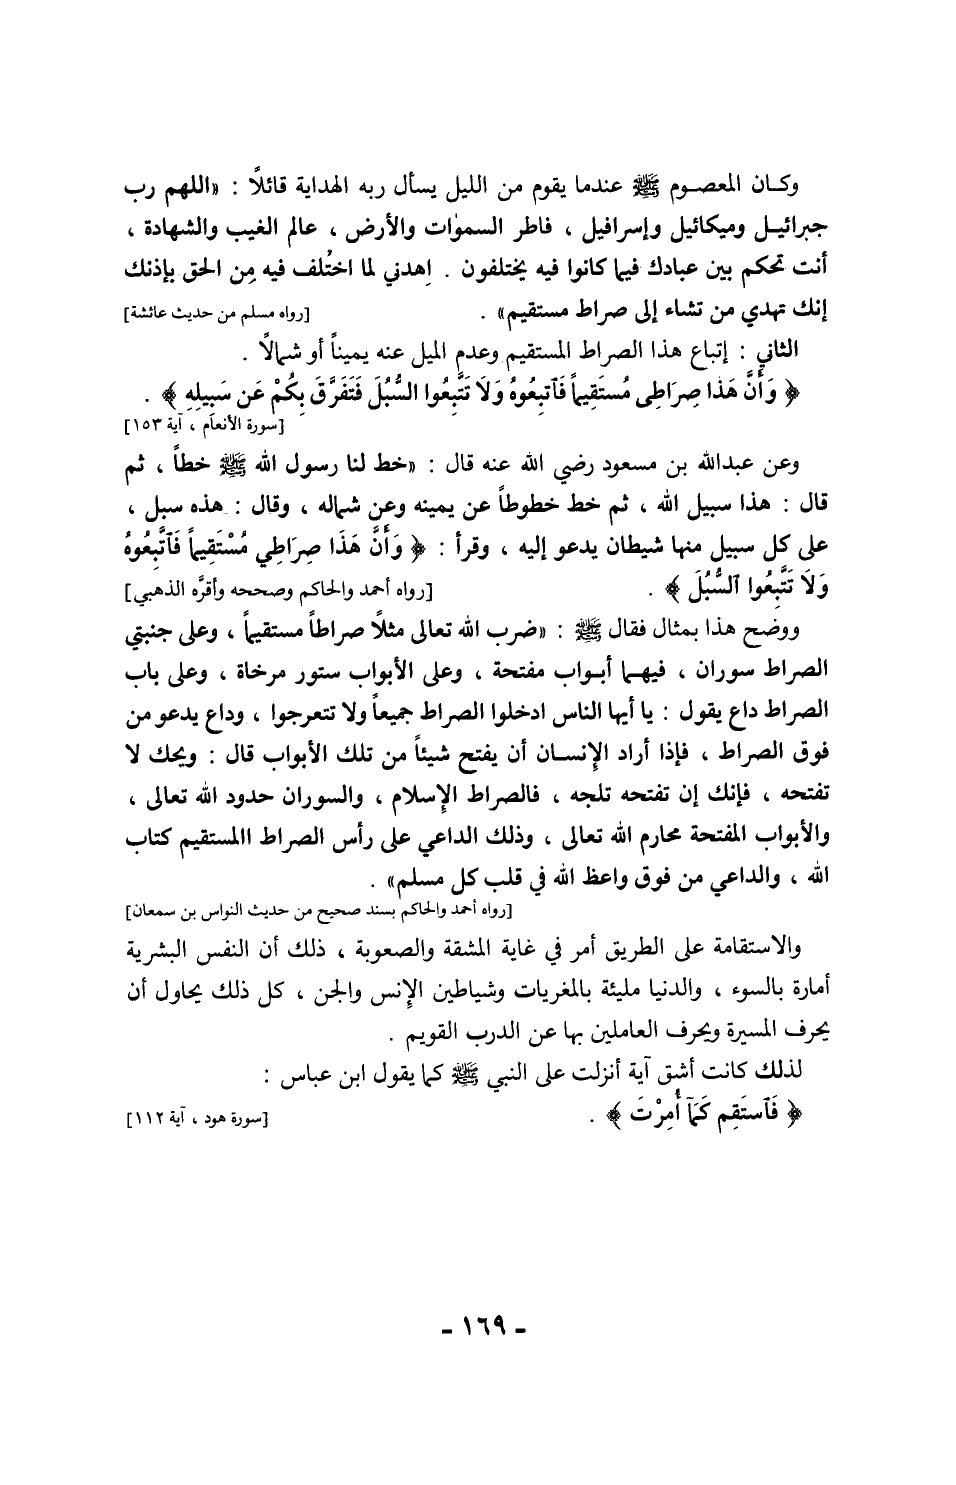 وكان المعصوم ﷺ عندما يقوم من الليل يسأل ربه الهداية قائلاً : «اللهم رب
جبرائيل وميكائيل وإسرافيل ، فاطر السمٰوات والأرض ، عالم الغيب والشهادة ،
أنت تحكم بين عبادك فيما كانوا فيه يختلفون . اِهدني لما اختُلف فيه مِن الحق بإذنك
إنك تهدي من تشاء إلى صراط مستقيم» . [رواه مسلم من حديث عائشة]
الثاني : إتباع هذا الصراط المستقيم وعدم الميل عنه يميناً أو شمالاً .
﴿ وَأَنَّ هَذَا صِرَاطِي مُستَقِيماً فَٱتبِعُوهُ وَلَا تَتَّبِعُوا السُّبُلَ فَتَفَرَّقَ بِكُمْ عَن سَبِيلِهِ ﴾ .
[سورة الأنعام ، آية ١٥٣]
وعن عبدالله بن مسعود رضي الله عنه قال : «خط لنا رسول الله ﷺ خطاً ، ثم
قال : هذا سبيل الله ، ثم خط خطوطاً عن يمينه وعن شماله ، وقال : هذه سبل ،
على كل سبيل منها شيطان يدعو إليه ، وقرأ : ﴿ وَأَنَّ هَذَا صِرَاطِي مُسْتَقِيماً فَٱتَّبِعُوهُ
وَلَا تَتَّبِعُوا ٱلسُّبُلَ ﴾ . [رواه أحمد والحاكم وصححه وأقرَّه الذهبي]
ووضح هذا بمثال فقال ﷺ : «ضرب الله تعالى مثلاً صراطاً مستقيماً ، وعلى جنبتي
الصراط سوران ، فيهما أبواب مفتحة ، وعلى الأبواب ستور مرخاة ، وعلى باب
الصراط داع يقول : يا أيها الناس ادخلوا الصراط جميعاً ولا تتعرجوا ، وداع يدعو من
فوق الصراط ، فإذا أراد الإنسان أن يفتح شيئاً من تلك الأبواب قال : ويحك لا
تفتحه ، فإنك إن تفتحه تلجه ، فالصراط الإسلام ، والسوران حدود الله تعالى ،
والأبواب المفتحة محارم الله تعالى ، وذلك الداعي على رأس الصراط االمستقيم كتاب
الله ، والداعي من فوق واعظ الله في قلب كل مسلم» .
[رواه أحمد والحاكم بسند صحيح من حديث النواس بن سمعان]
والاستقامة على الطريق أمر في غاية المشقة والصعوبة ، ذلك أن النفس البشرية
أمارة بالسوء ، والدنيا مليئة بالمغريات وشياطين الإنس والجن ، كل ذلك يحاول أن
يحرف المسيرة ويحرف العاملين بها عن الدرب القويم .
لذلك كانت أشق آية أنزلت على النبي ﷺ كما يقول ابن عباس :
﴿ فَٱستَقِم كَمَآ أُمِرْتَ ﴾ . [سورة هود ، آية ١١٢]
- ١٦٩ -